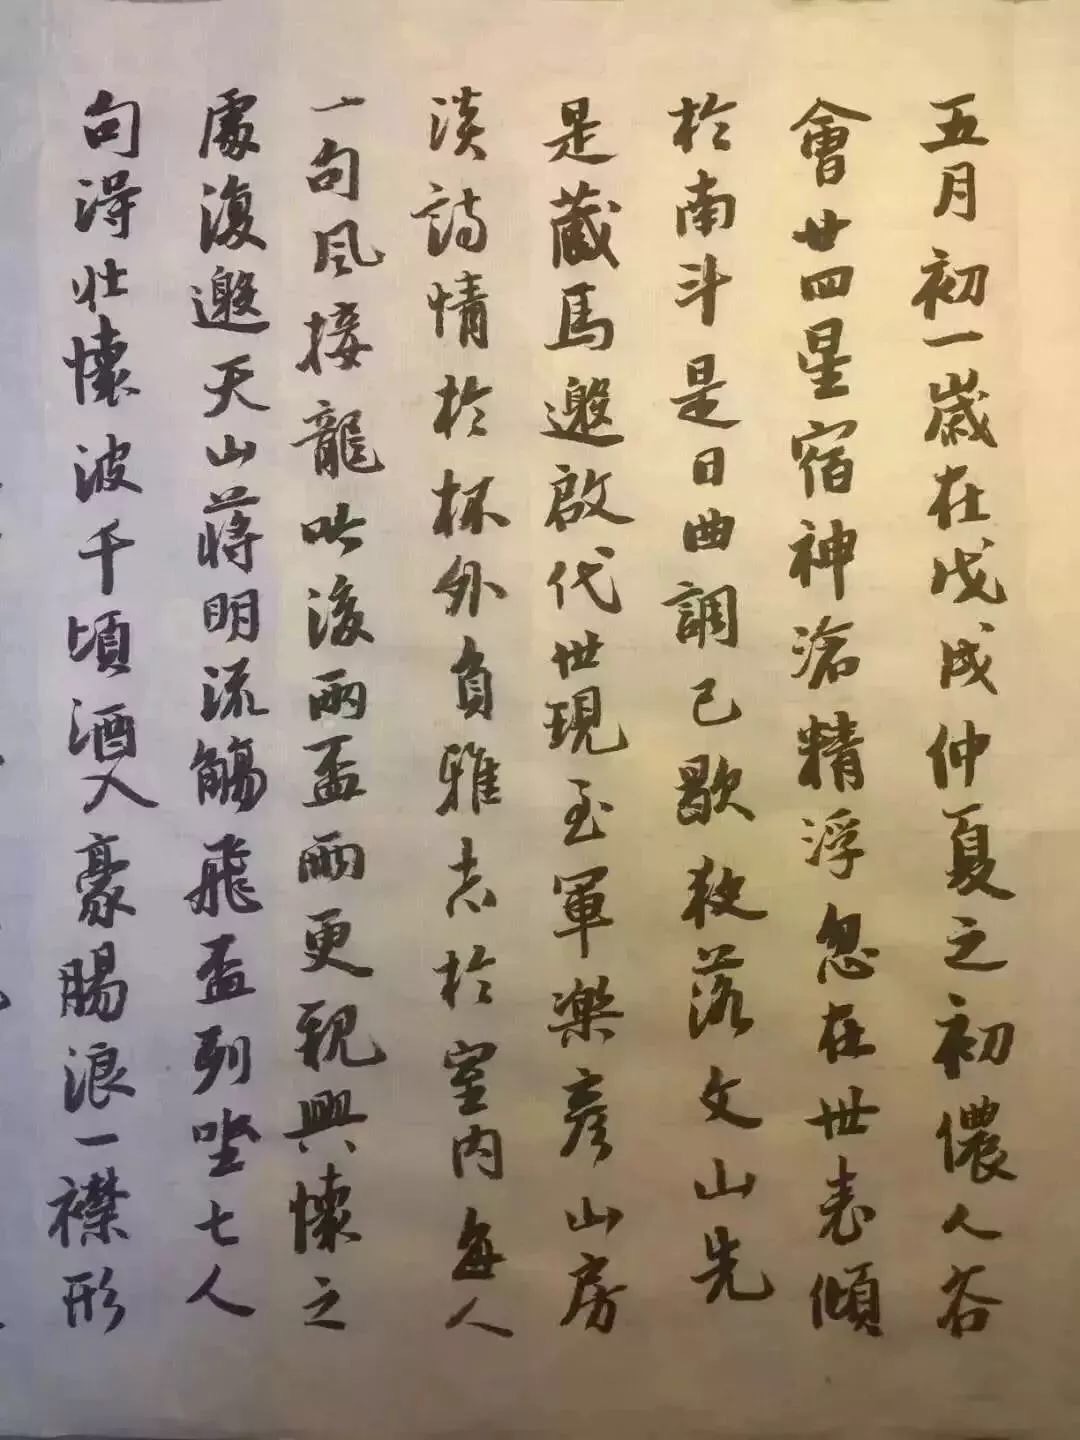 五月初一歲在戊戌仲夏之初儂人谷
會廿四星宿神滄精浮忽在世表傾
於南斗是日曲調已歇狄落文山先
是蔵馬邀啟代世現至軍樂彥山房
淡詩情於杯外負雅志於室内每人
一句風接龍吟後兩盃兩更親興懷之
處復邀天山蔣明流觴飛盃列坐七人
句得壯懷波千頃酒入豪腸浪一襟形